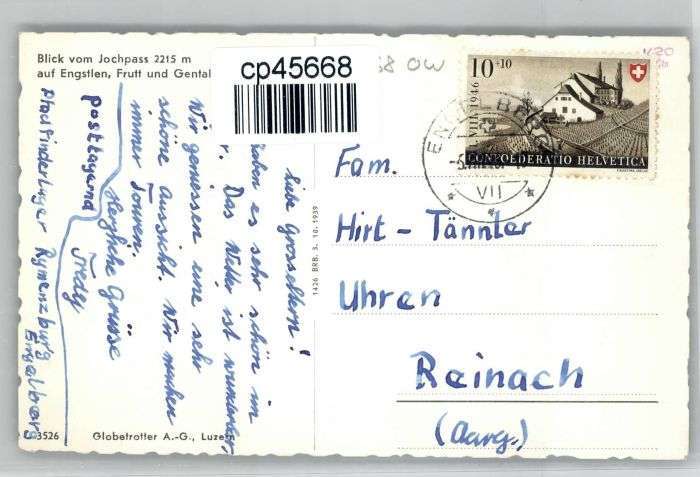 Blick vom Jochpass 2215 m
auf Engstlen, Frutt und Gental
cp45668
Liebe Grosseltern!
haben es sehr schön im
Das Wetter ist wunderbar.
Wir geniessen eine sehr
schöne Aussicht. Wir machen
immer Touren.
Herzliche Grüsse
Fredy
postlagernd
Pfadfinderlager Rymenzburg
Engelberg
1426 BRB. 3. 10. 1939
3526
Globetrotter A.-G., Luzern
68 OW
10+10
VIII 1946
CONFOEDERATIO HELVETICA
VII
Fam.
Hirt - Tännler
Uhren
Reinach
(Aarg.)